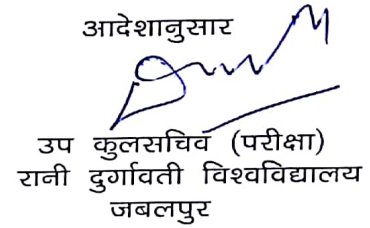 आदेशानुसार
उप कुलसचिव (परीक्षा)
रानी दुर्गावती विश्वविद्यालय
जबलपुर